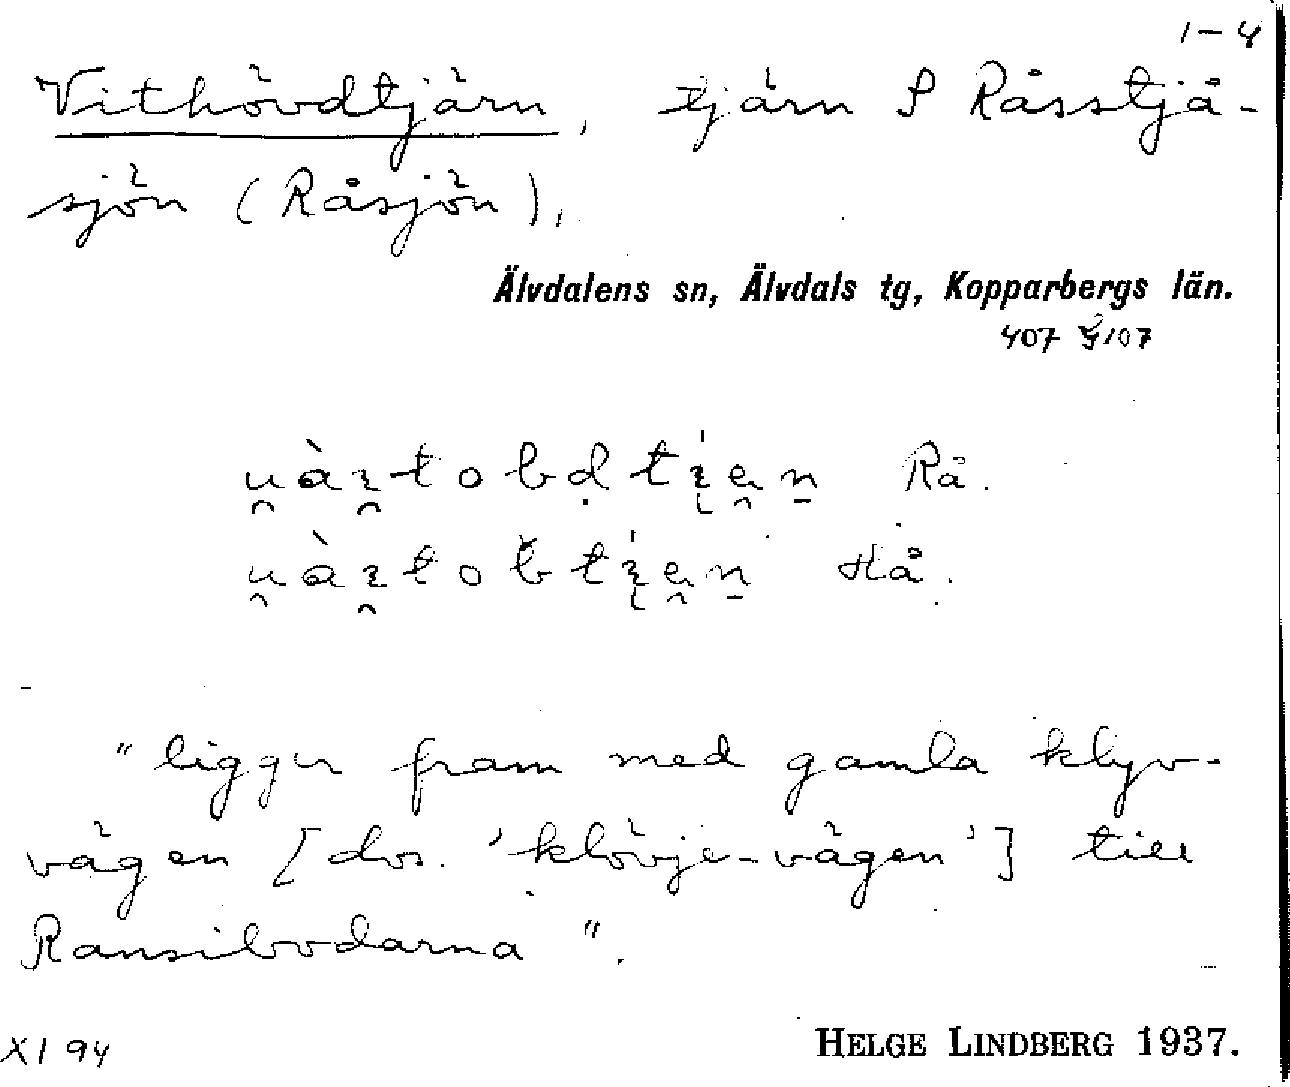 1-4
Vithövdtjärn, tjärn S Råsstjå-
sjön (Råsjön),
Älvdalens sn, Älvdals tg, Kopparbergs län.
407
Rå.
Kå.
"ligger fram med gamla klyv-
vägen [dvs. 'klövje-vägen'] till
Ransibodarna".
XI 94
HELGE LINDBERG 1937.